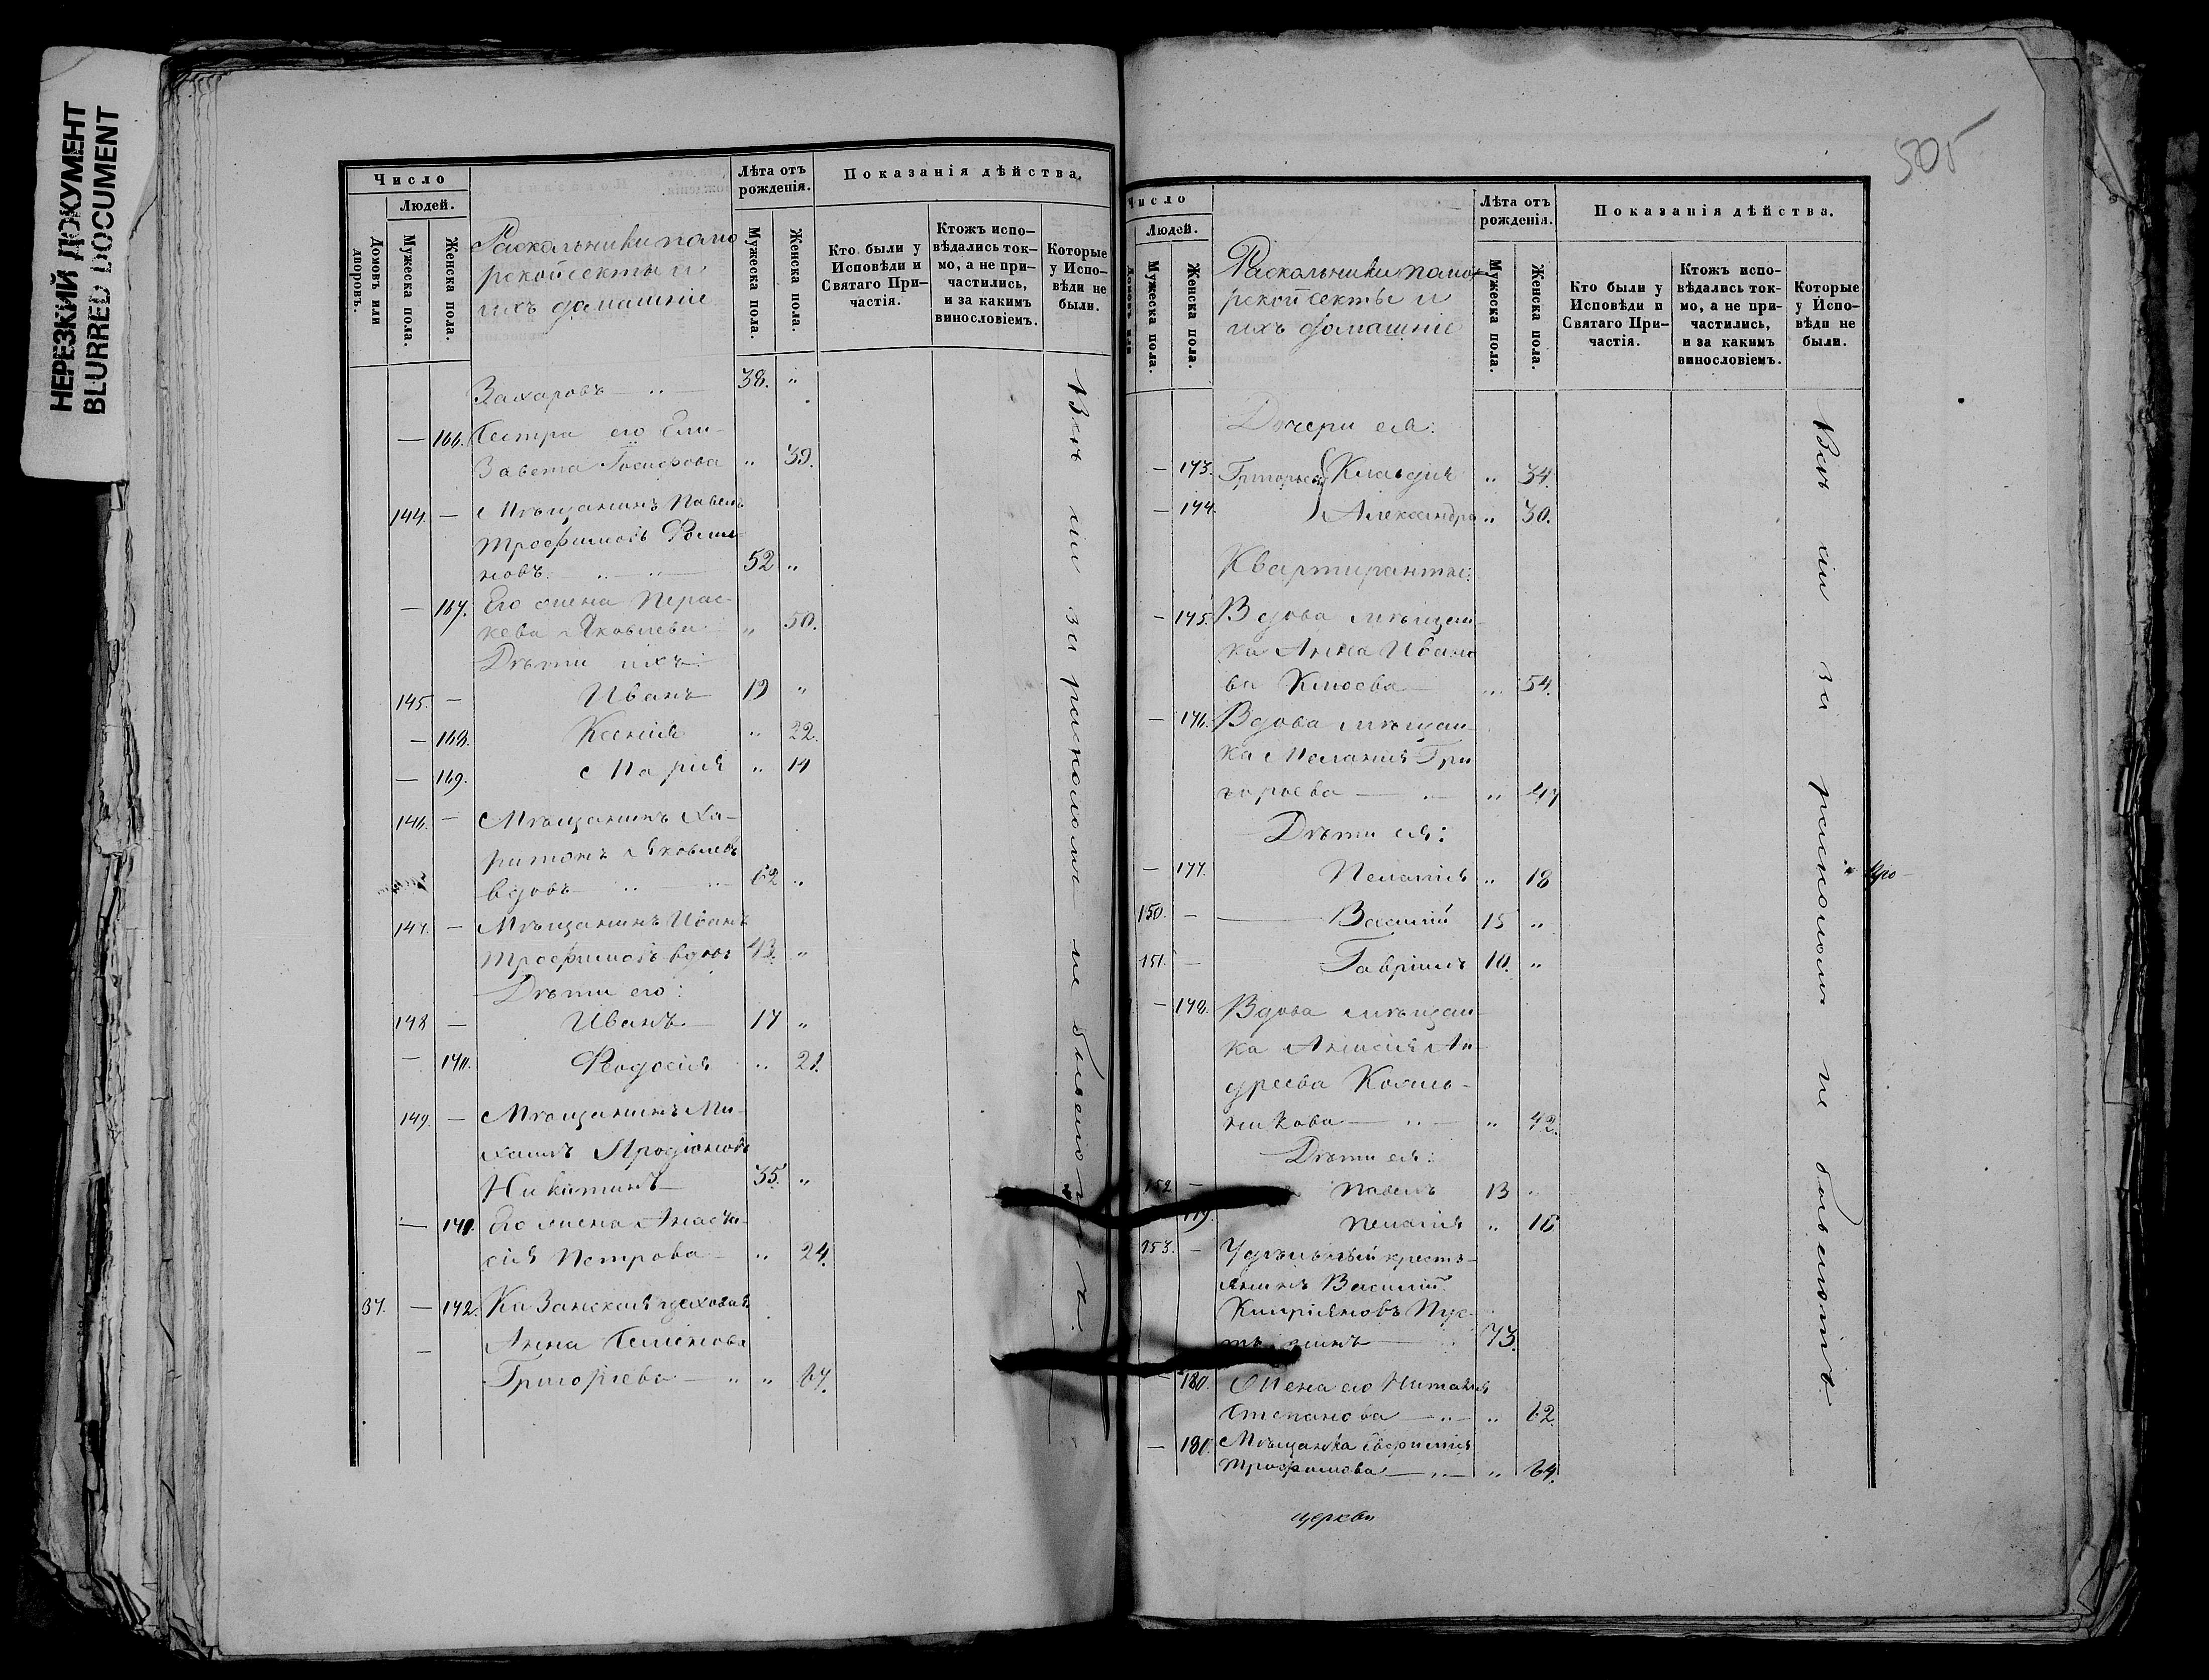 НЕРЕЗКИЙ ДОКУМЕНТ
BLURRED DOCUMENT
Число
Людей.
Домовъ или дворовъ.
Мужеска пола.
Женска пола.
Раскольники помо
рской секты и
ихъ домашніе
Лѣта отъ рожденія.
Мужеска пола.
Женска пола.
Показанія дѣйства.
Кто были у Исповѣди и Святаго При-
частія.
Ктожъ испо-
вѣдались ток-
мо, а не при-
частились,
и за какимъ
винословіемъ.
Которые
у Испо-
вѣди не
были.
Захаровъ — „ — 38. „
— 166. Сестра его Ели-
завета Захарова „ 39.
144. — Мѣщанинъ Павелъ
Трофимовъ
новъ. „ — „ 52 „
— 167. Его жена Парас-
кева Яковлева „ 50.
Дѣти ихъ:
145. — Иванъ 19 „
— 168. Ксенія „ 22.
— 169. Марія „ 14
146. — Мѣщанинъ Ха-
ритонъ Яковлевъ
вдовъ — „ 62 „
147. — Мѣщанинъ Иванъ
Трофимовъ вдовъ 43. „
Дѣти его:
148 — Иванъ — 17 „
— 170. Феодосія „ 21.
149. — Мѣщанинъ Ми-
хаилъ Иродіоновъ
Никитинъ 35. „
— 171. Его жена Анаста-
сія Петрова — „ 24.
37. — 172. Казанская цеховая
— Анна Семенова
Григорьева — „ „ 67.
Всѣ сіи за расколомъ не бываютъ.
505
Число
Людей.
Домовъ или
Мужеска пола.
Женска пола.
Раскольники помо-
рской секты и
ихъ домашніе
Лѣта отъ рожденія.
Мужеска пола.
Женска пола.
Показанія дѣйства.
Кто были у
Исповѣди и
Святаго При-
частія.
Ктожъ испо-
вѣдались ток-
мо, а не при-
частились,
и за какимъ
винословіемъ.
Которые
у Испо-
вѣди не
были.
Дочери ея:
— 173. Григорьевы Клавдія „ 34.
— 174. Александра „ 30.
Квартиранты:
— 175. Вдова мѣщан-
ка Анна Ивано
ва Клюева — „ 54.
— 176. Вдова мѣщан-
ка Меланія Гри
горьева — „ — „ 47
Дѣти ея:
— 177. Пелагія „ 18
150. — Василій 15 „
151. — Гавріилъ 10. „
— 178. Вдова мѣщан-
ка Анисія Ан-
дреева
никова — „ — „ 42.
Дѣти ея:
152 — Павелъ 13 „
179. Пелагія „ 16
153. — Удѣльный кресть-
янинъ Василій
Кипріяновъ
73.
— 180. Жена его Наталія
Степанова — „ — „ 62
— 181. Мѣщанка Евфимія
Трофимова — „ — „ 64.
Всѣ сіи за расколомъ не бываютъ
церкви